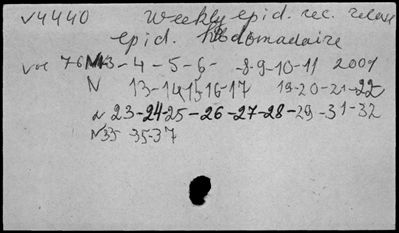 v4440 Weekly epid. rec. releve
epid. hebdomadaire
vol 76 N 3-4-5-6- -8-9-10-11 2001
N 13-14,15,16-17 19-20-21-22
N 23-24-25-26-27-28-29-31-32
N33 35-37